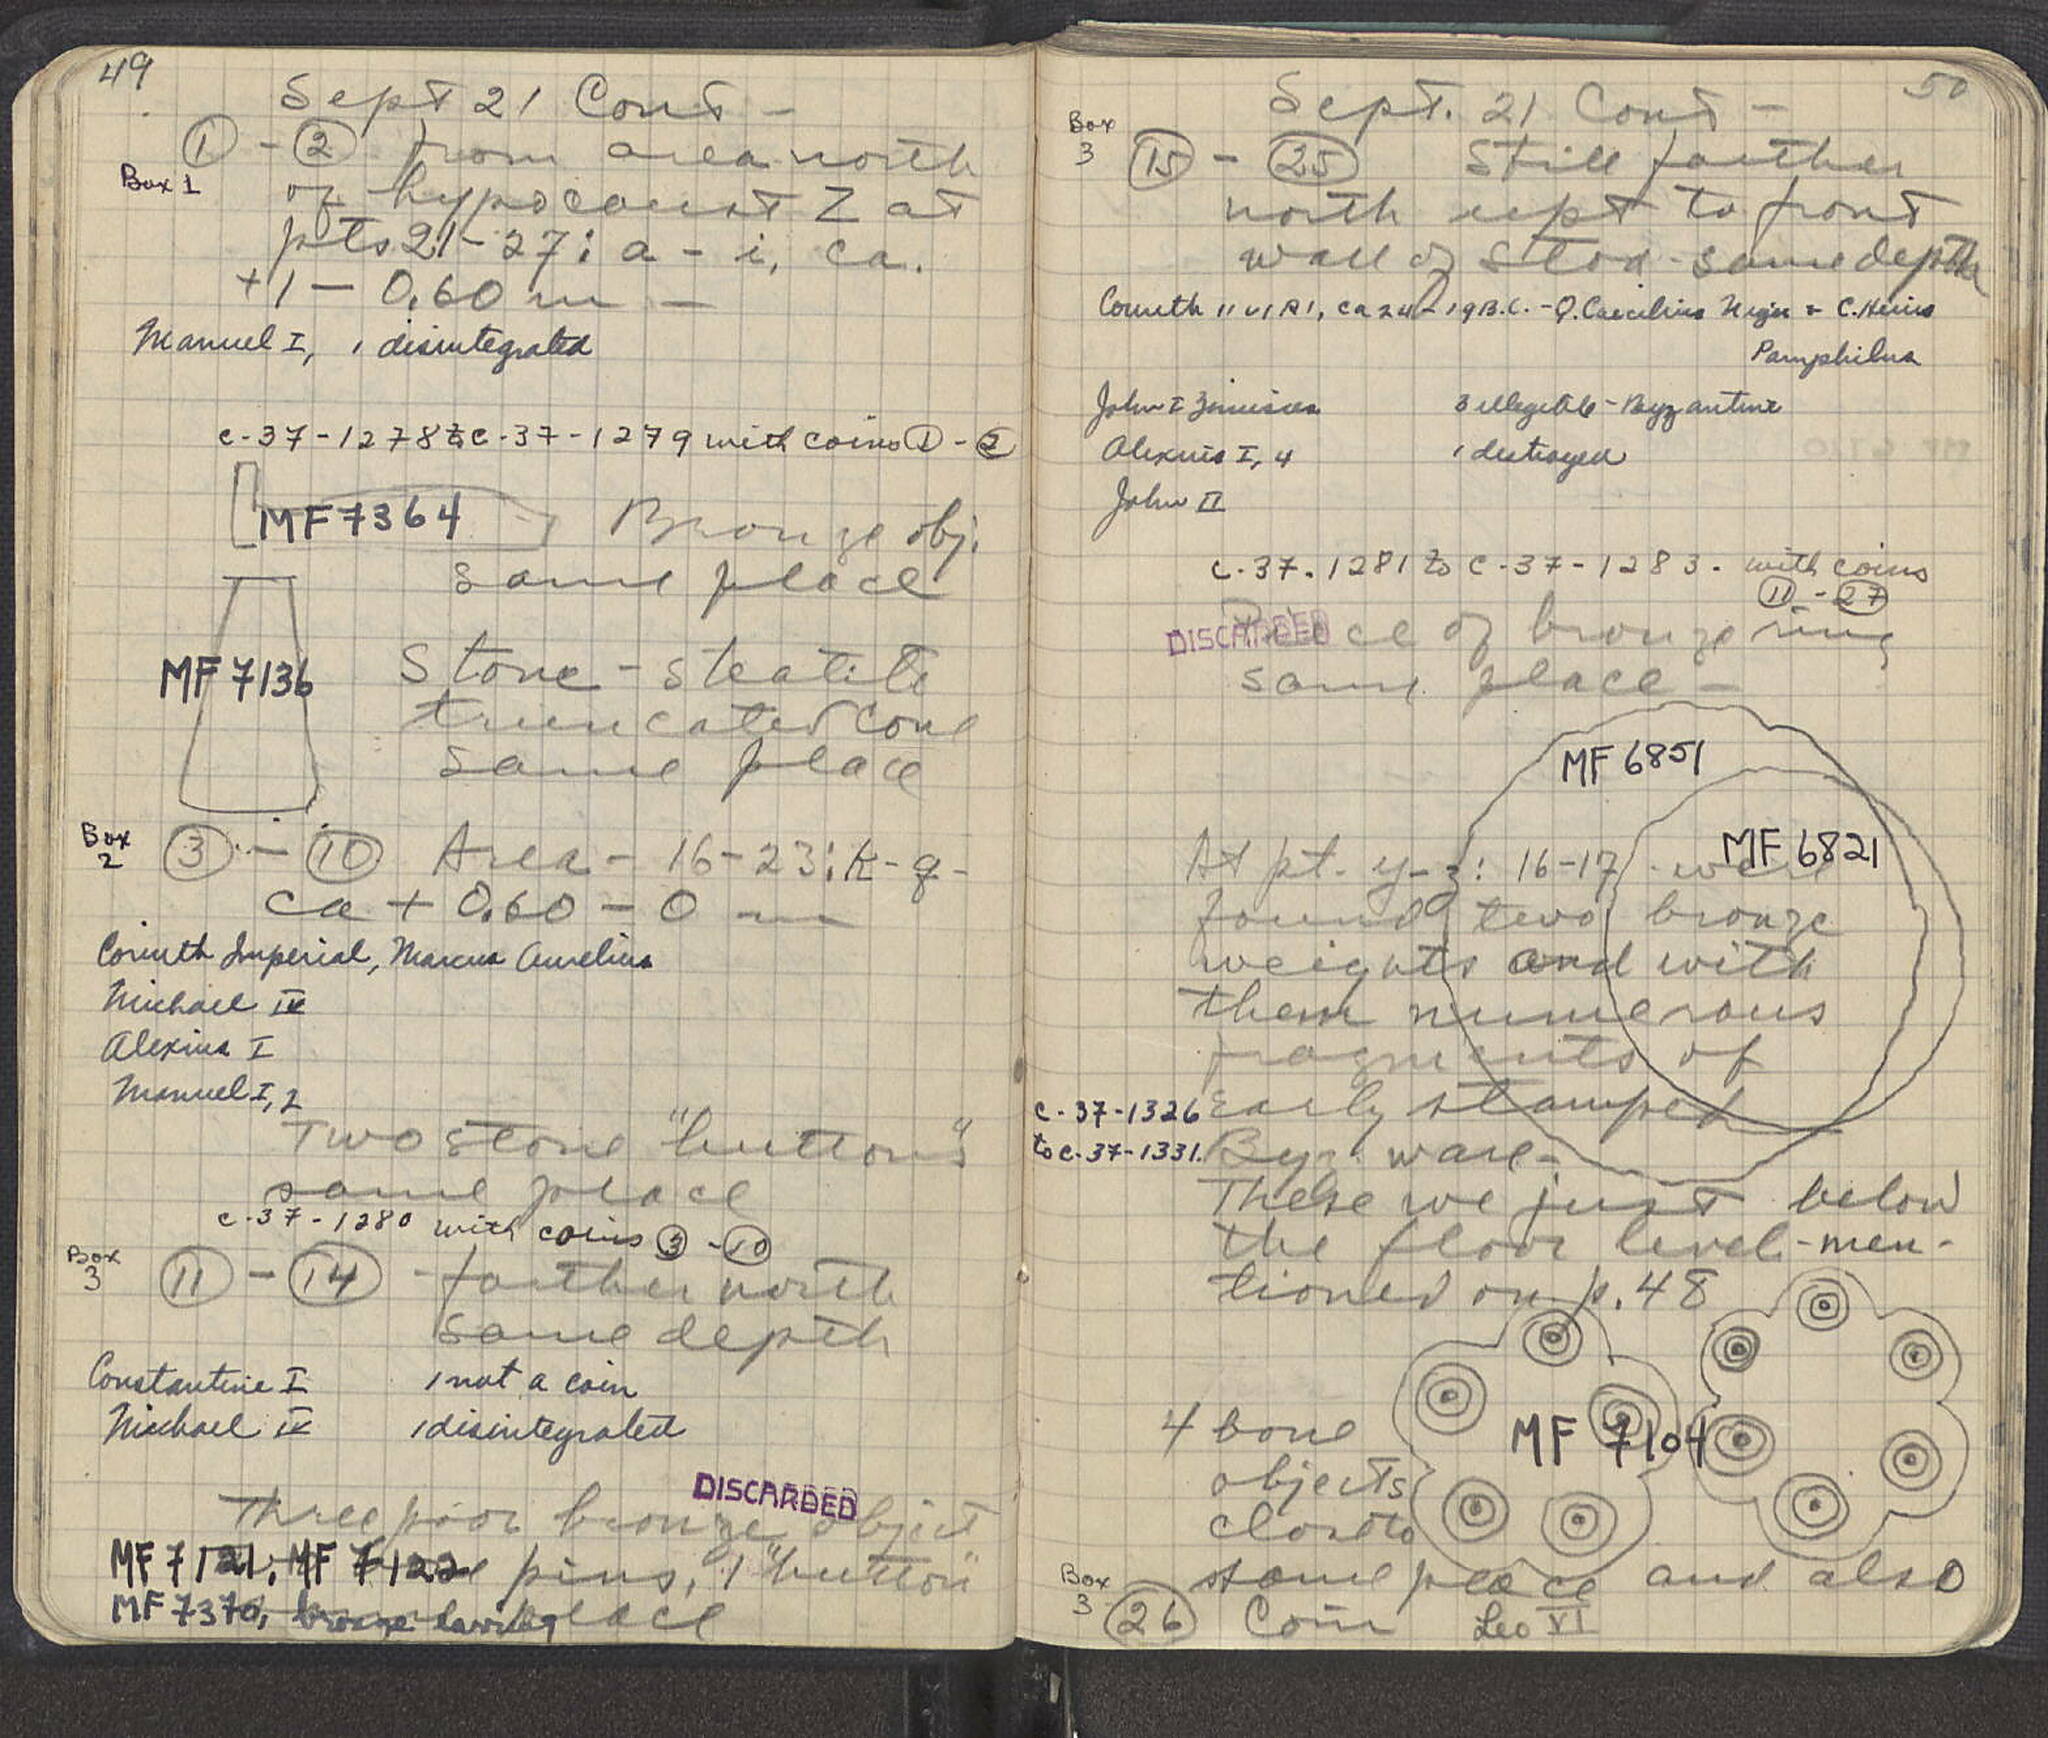 49
Sept 21 Cont -
① - ② from area north
Box 1
of hypocaust Z at
pts 21-27: a - i, ca.
+1 - 0.60 m -
Manuel I, 1 disintegrated
C-37-1278 to C-37-1279 with coins ① - ②
MF 7364 Bronze obj.
same place
MF 7136
Stone - steatite
truncated cone
same place
Box 2
③ - ⑩ Area - 16-23: k-q-
ca + 0.60 - 0 m
Corinth Imperial, Marcus Aurelius
Michael IV
Alexius I
Manuel I, 2
Two stone "buttons"
same place
C-37-1280 with coins ③ - ⑩
Box 3
⑪ - ⑭ - farther north
same depth
Constantine I 1 not a coin
Michael IV 1 disintegrated
DISCARDED
Three poor bronze object
MF 7121, MF 7122 pins, 1 "button"
MF 7370, bronze earring place
50
Sept. 21 Cont -
Box 3
⑮ - ㉕ Still farther
north up to front
wall of Stoa - same depth
Corinth II VIRI, ca 24-19 B.C. - Q. Caecilius Niger + C. Heius
Pamphilus
John I Zimisces 3 illegible - Byzantine
Alexius I, 4 1 destroyed
John II
C-37-1281 to C-37-1283. with coins
⑪ - ㉗
DISCARDED
Piece of bronze ring
same place -
MF 6851
MF 6821
At pt. y-z: 16-17 were
found two bronze
weights and with
them numerous
fragments of
C-37-1326 early stamped
to C-37-1331. Byz. ware -
These we just below
the floor level - men-
tioned on p. 48
MF 7104
4 bone
objects
close to
same place and also
Box 3
㉖ Coin Leo VI